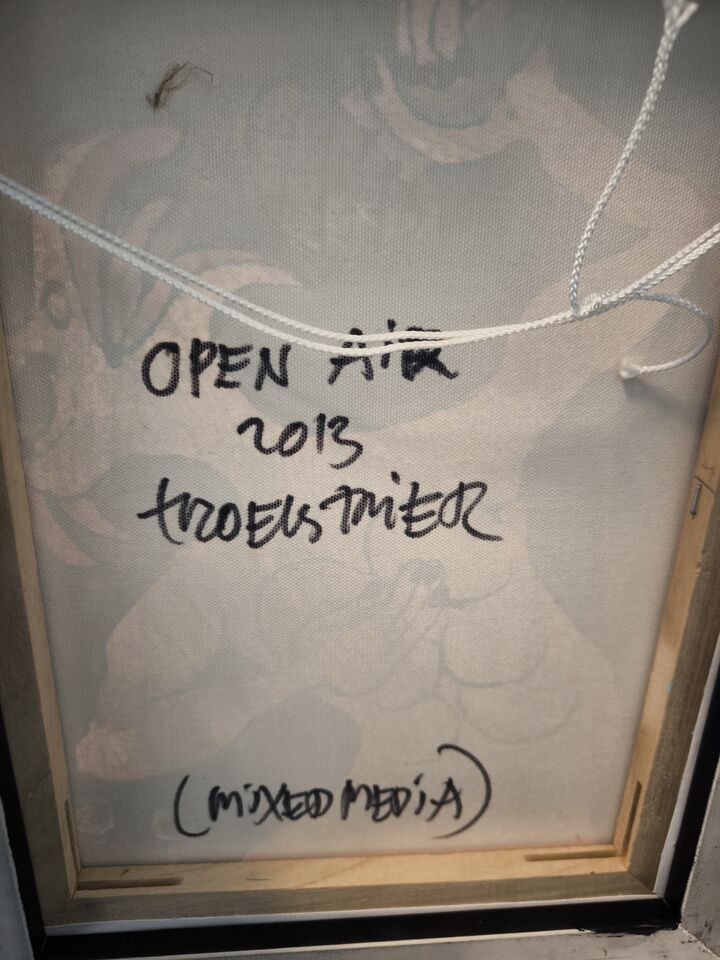 OPEN AiR
2013
tROELS TRiER
(MiXED MEDiA)